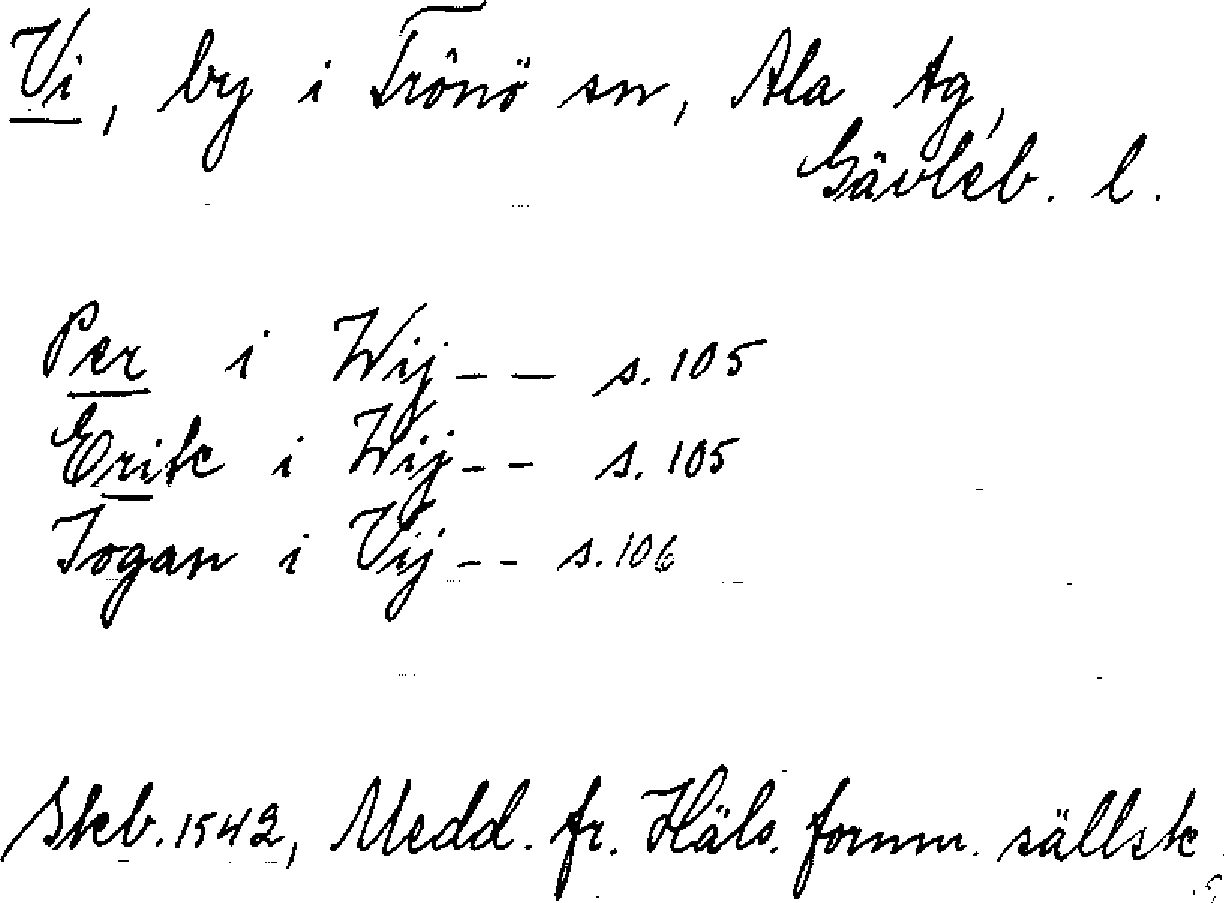 Vi, by i Trönö sn, Ala tg,
Gävleb. l.
Per i Wij - - s. 105
Erik i Wij - - s. 105
Jogan i Vij - - s. 106
Skb. 1542, Medd. fr. Häls. fornm. sällsk.